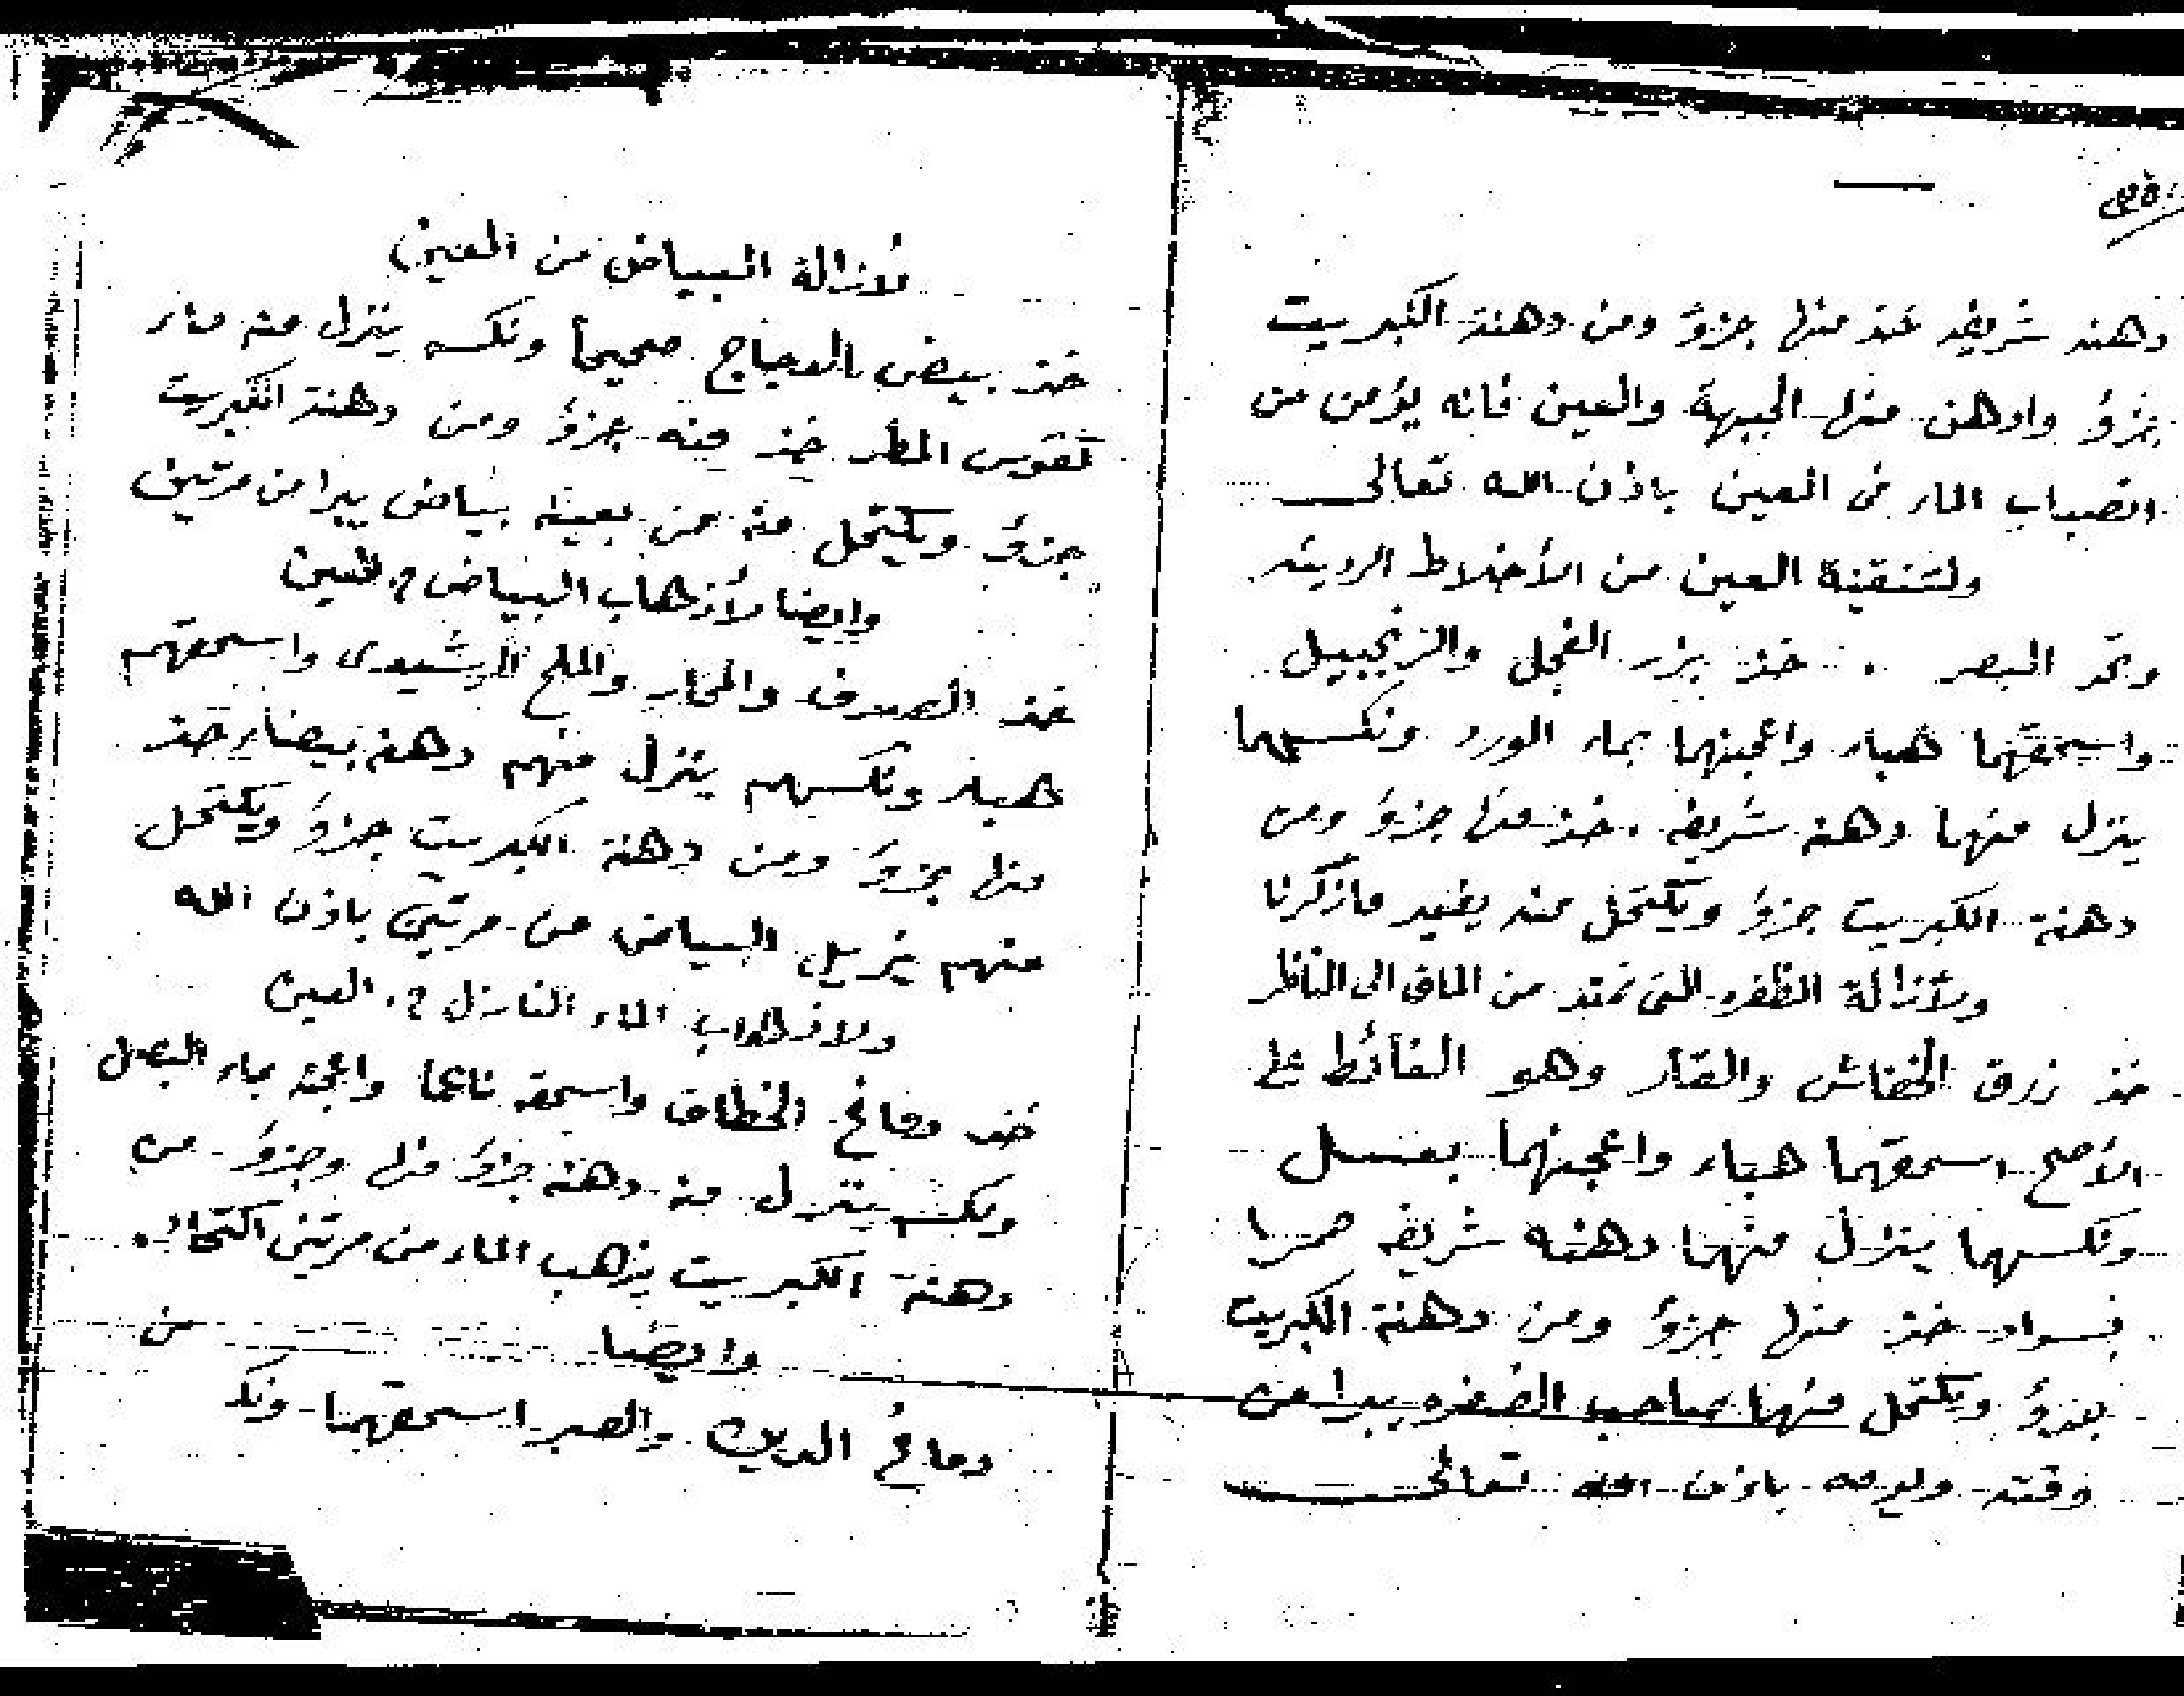 دهنه شريفه خذ منها جزؤ ومن دهنة الكبريت
جزؤ وادهن منها الجبهة والعين فانه يؤمن من
انصباب الماء فى العين باذن الله تعالى
ولتنقية العين من الأخلاط الرديئه
وتحد البصر . خذ بزر الفجل والزنجبيل
واسحقهما هباء واعجنهما بماء الورد ونكسهما
ينزل منهما دهنه شريفه . خذ منها جزؤ ومن
دهنة الكبريت جزؤ ويكتحل منه يفيد ماذكرنا
ولأزالة الظفره التى تمتد من الماق الى الناظر
خذ زرق الخفاش والفأر وهو الغائط على
الأصح اسحقهما هباء واعجنهما بعسل
ونكسهما ينزل منهما دهنه شريفه حمرا
بسواد خذ منها جزؤ ومن دهنة الكبريت
جزؤ ويكتحل منهما صاحب الضفره يبرا من
وقته باذن الله تعالى
لأزالة البياض من العين
خذ بيض الدجاج صحيحا ونكسه ينزل منه ماء
كقوس المطر خذ منه جزؤ ومن دهنة الكبريت
جزؤ ويكتحل منه من بعينه بياض يبرا من مرتين
وايضا لأذهاب البياض من العين
خذ الصدف والمحار والملح الرشيدى واسحقهم
هباء ونكسهم ينزل منهم دهنه بيضاء خذ
منها جزؤ ومن دهنة الكبريت جزؤ ويكتحل
منهم يزيل البياض من مرتين باذن الله
ولاذهاب الماء النازل فى العين
خذ دماغ الخطاف واسحقه ناعما واعجنه بماء البصل
ونكسه ينزل منه دهنه جزؤ منها وجزؤ من
دهنة الكبريت يذهب الماء من مرتين اكتحال .
وايضا من
دماغ الديك والصبر اسحقهما ونكـ